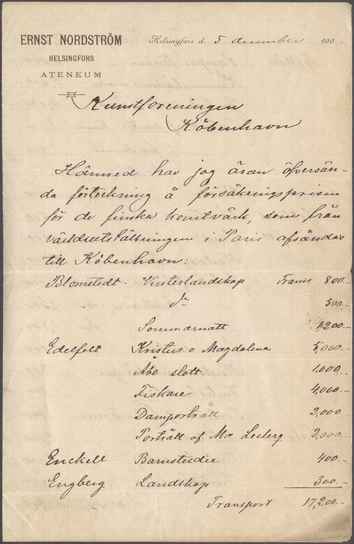 ERNST NORDSTRÖM
HELSINGFORS
ATENEUM
Helsingfors d. 5 december 190
Kunstforeningen
København
Härmed har jag äran öfversän-
da förteckning å försäkringsprisen
för de finska konstvärk, som från
världsutställningen i Paris afsändas
till København:
Blomstedt - Vinterlandskap Francs 800 -
do 500 -
Sommarnatt 1200 -
Edelfelt Kristus o Magdalena 5,000 -
Åbo slott 1,000 -
Fiskare 4,000 -
Damporträtt 3,000
Porträtt af Mr Leclerq
Enckell Barnstudie 400 -
Engberg Landskap 300 -
Transport 17,200 -